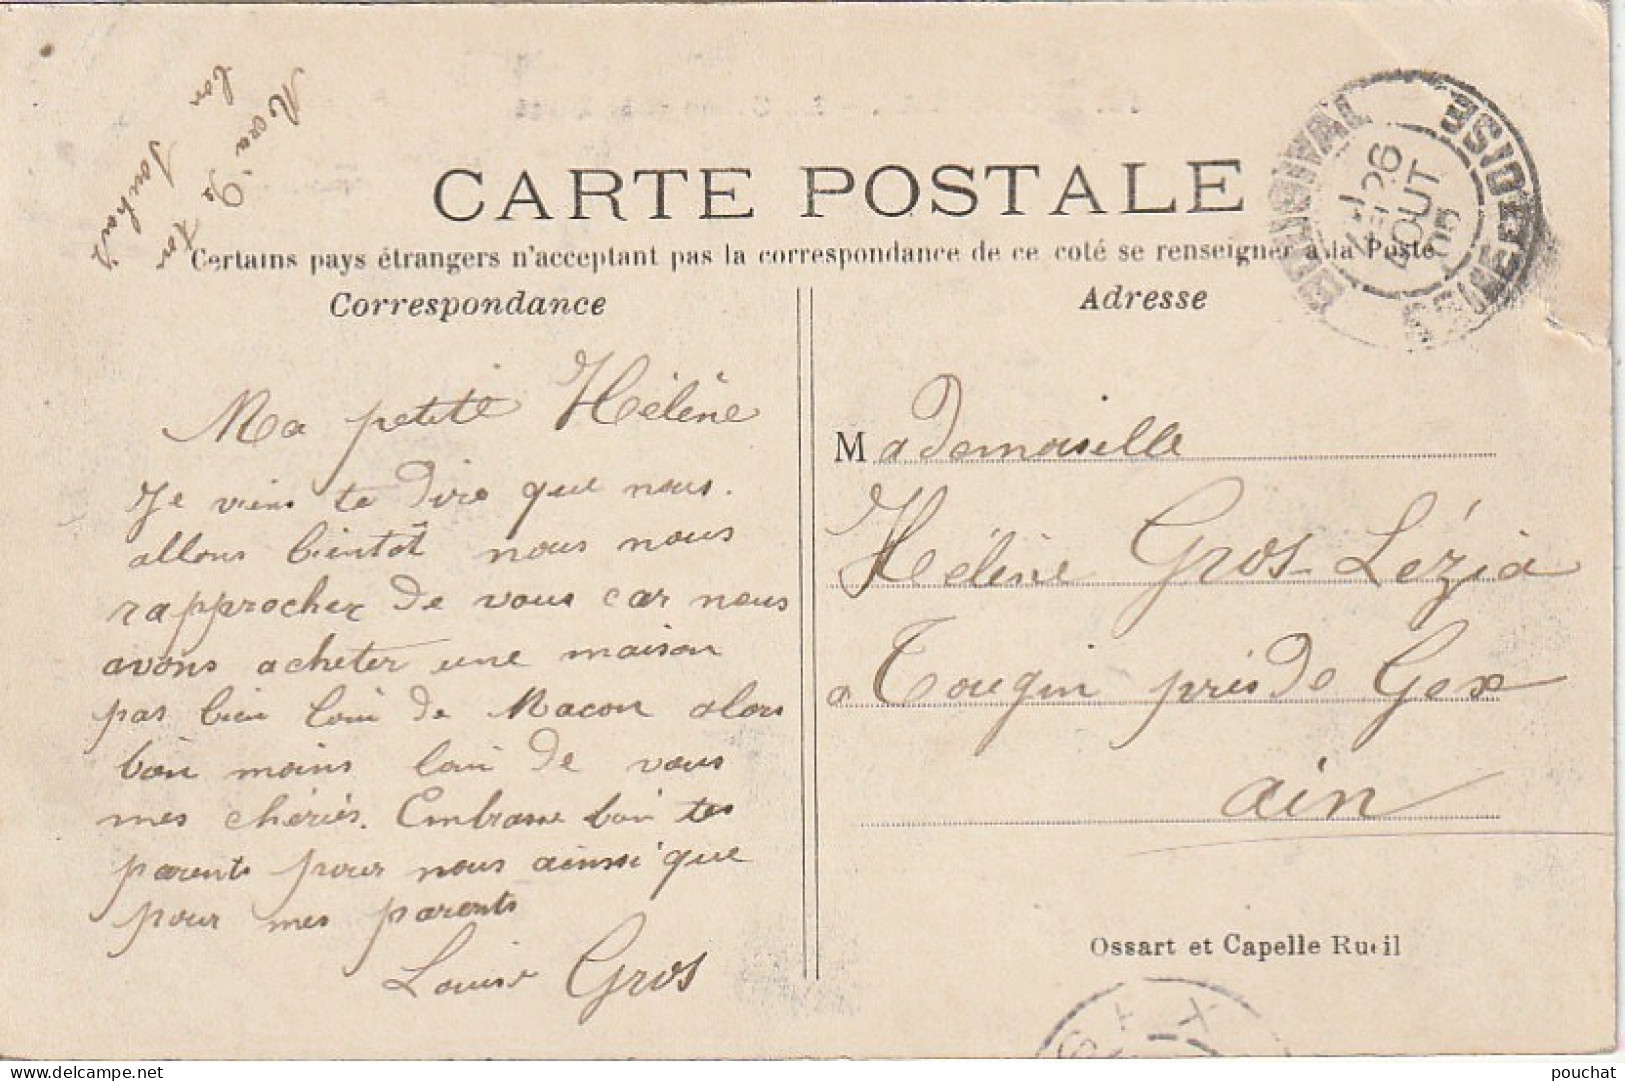 Merci de ton
bon souhait
CARTE POSTALE
Certains pays étrangers n'acceptent pas la correspondance de ce coté se renseigner à la Poste
Correspondance
Adresse
BOUGIVAL
SEINE-ET-OISE
26
AOUT
05
Ma petite Hélène
Je viens te dire que nous.
allons bientôt nous nous
rapprocher de vous car nous
avons acheter une maison
pas bien loin de Macon alors
bien moins loin de vous
mes chéries. Embrasse bien tes
parents pour nous ainssi que
pour mes parents
Louise Gros
Mademoiselle
Hélène Gros-Lézia
a Tougin près de Gex
ain
Ossart et Capelle Rueil
delcampe.net
pouchat